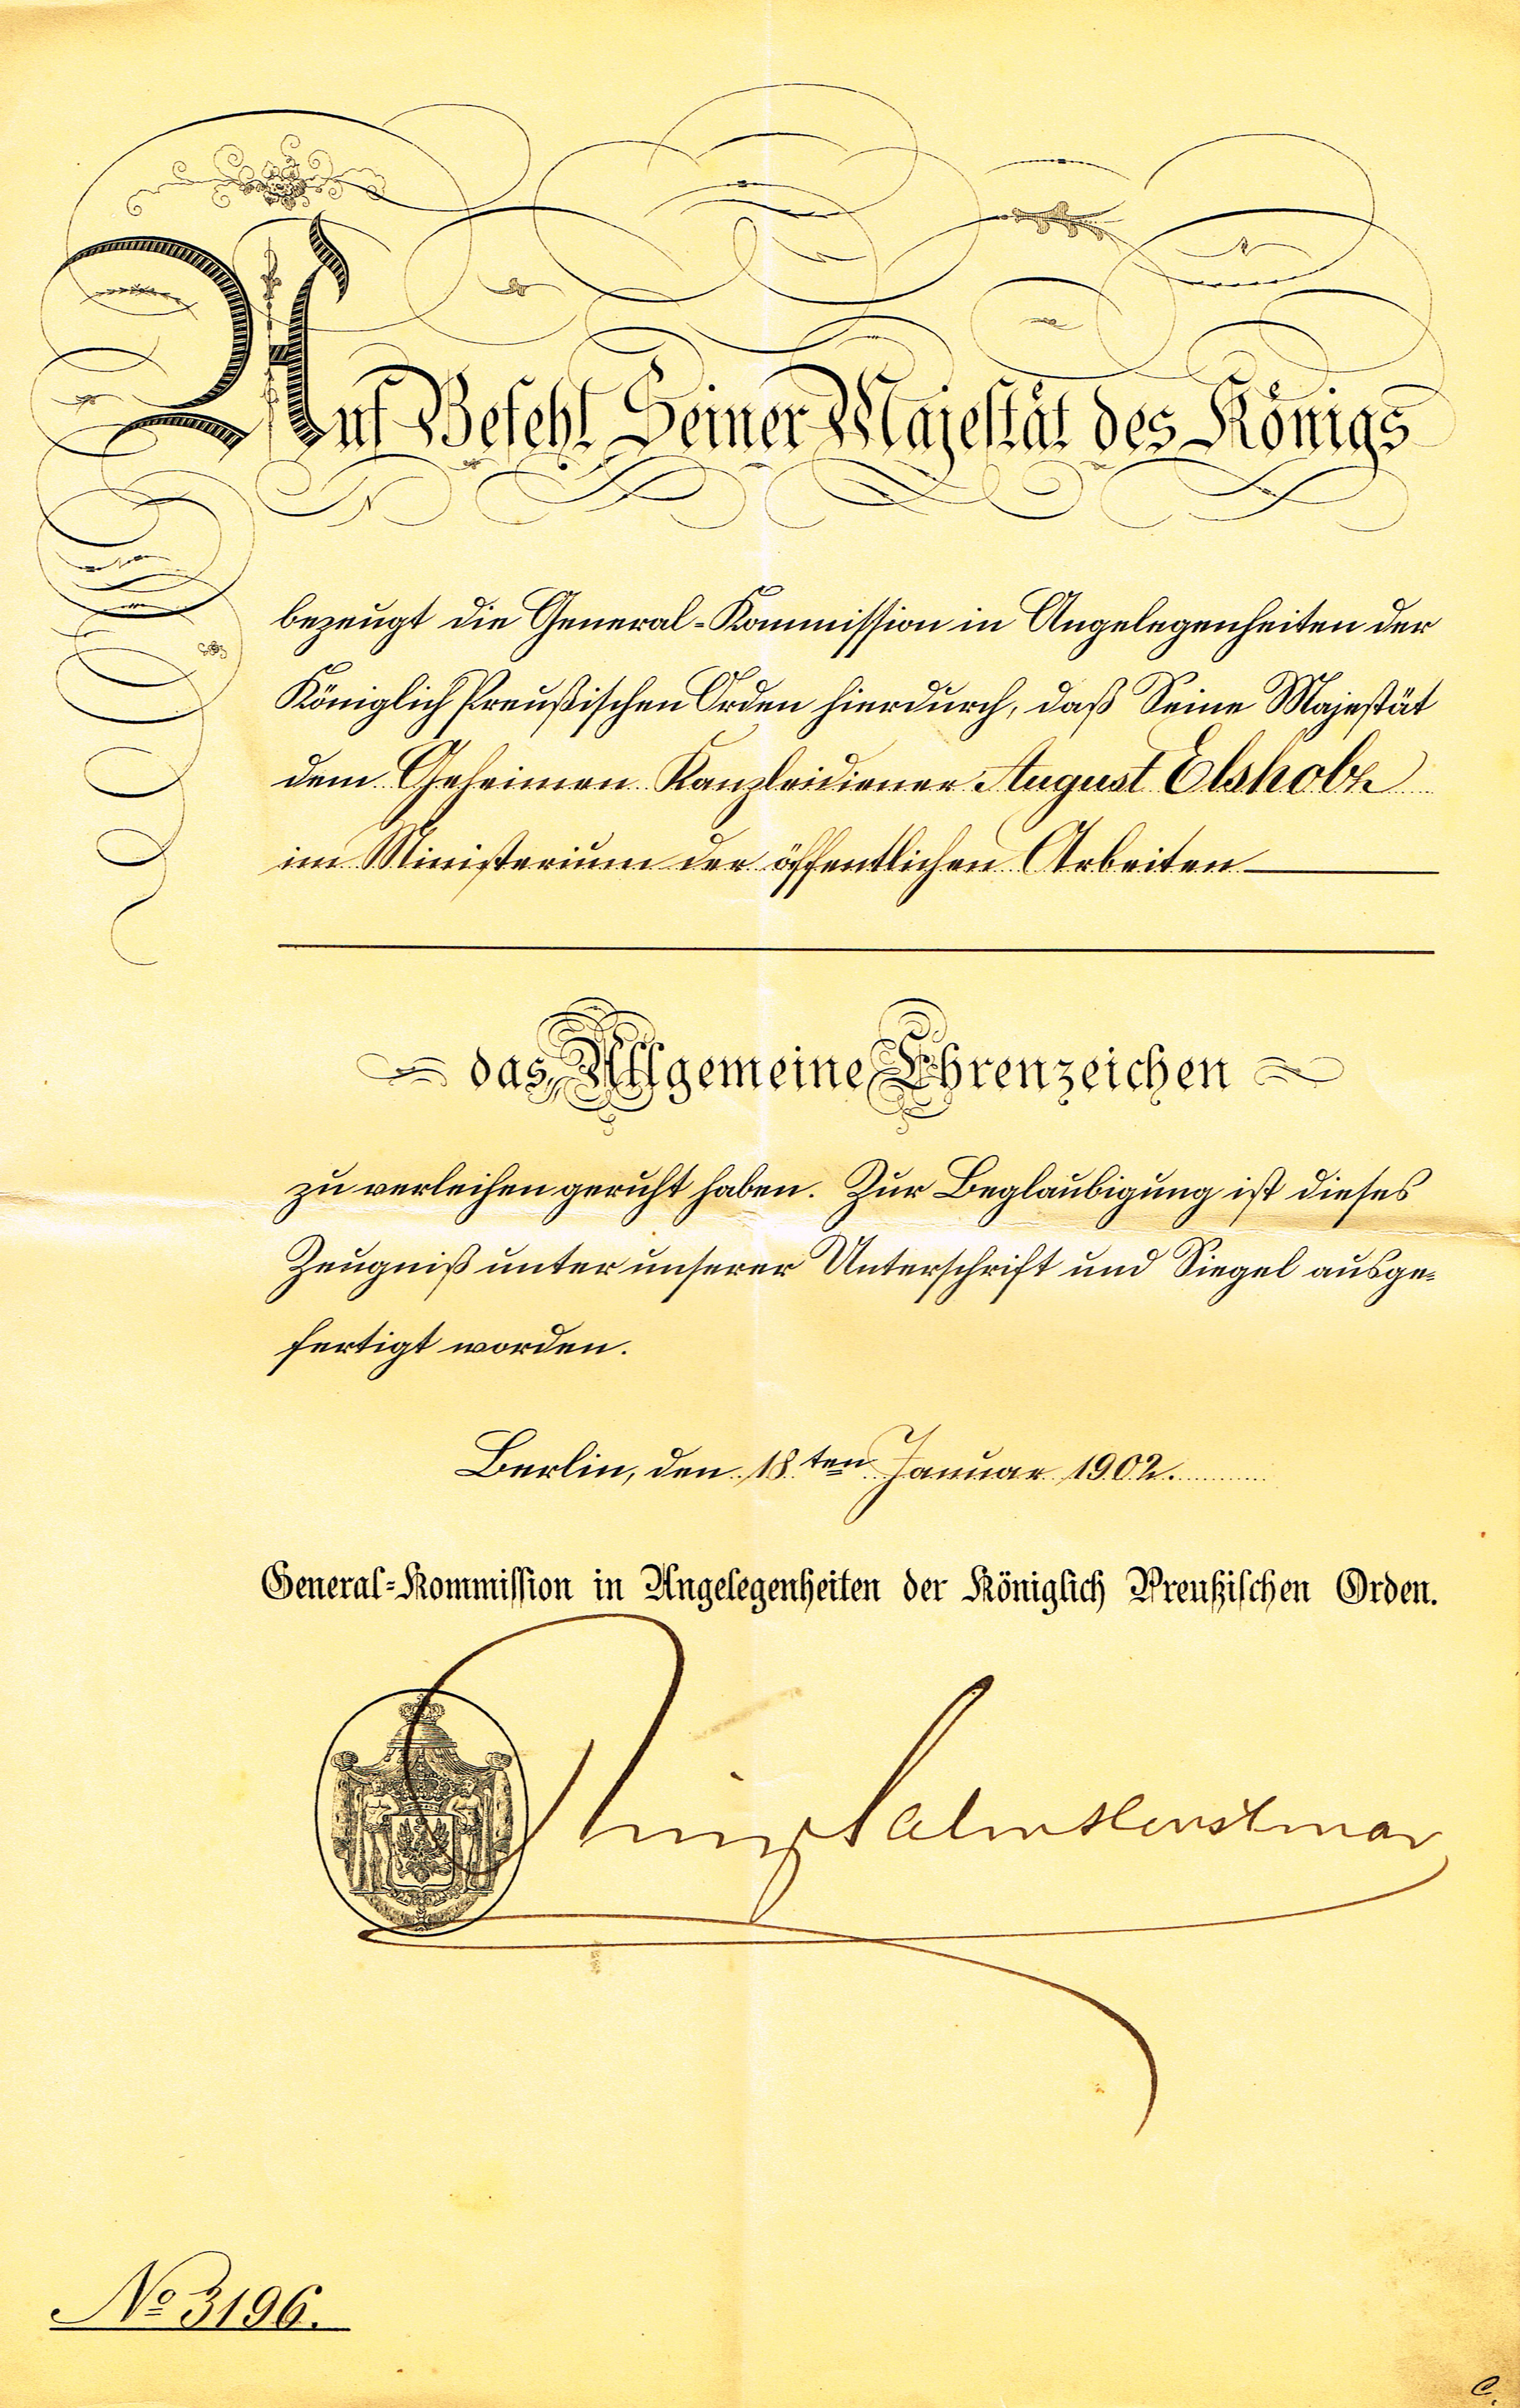 Auf Befehl Seiner Majestät des Königs
bezeugt die General-Kommission in Angelegenheiten der
Königlich Preußischen Orden hierdurch, daß Seine Majestät
dem Geheimen Kanzleidiener August Elsholz
im Ministerium der öffentlichen Arbeiten
das Allgemeine Ehrenzeichen
zu verleihen geruht haben. Zur Beglaubigung ist dieses
Zeugniß unter unserer Unterschrift und Siegel ausge-
fertigt worden.
Berlin, den 18ten Januar 1902.
General-Kommission in Angelegenheiten der Königlich Preußischen Orden.
Salm Horstmar
No 3196.
C.